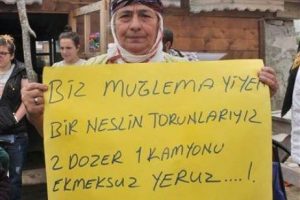 BİZ MUĞLEMA YİYEN
BİR NESLİN TORUNLARIYIZ
2 DOZER 1 KAMYONU
EKMEKSUZ YERUZ....!.